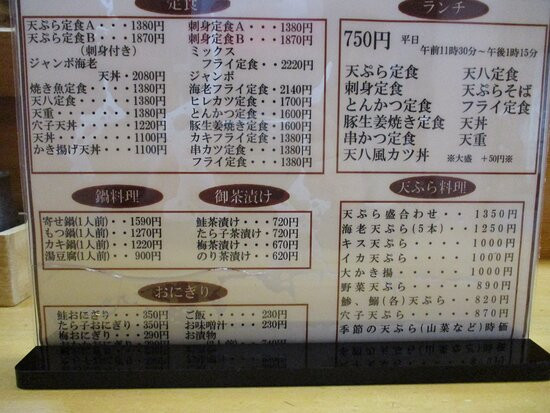 定食
天ぷら定食A・・1380円
天ぷら定食B・・1870円
(刺身付き)
ジャンボ海老
天丼・・2080円
焼き魚定食・・・1380円
天八定食・・・・1380円
天重・・・・・・1380円
穴子天丼・・・・1220円
天丼・・・・・・1100円
かき揚げ天丼・・1100円
刺身定食A・・・1380円
刺身定食B・・・1870円
ミックス
フライ定食・・2220円
ジャンボ
海老フライ定食・2140円
ヒレカツ定食・・1700円
とんかつ定食・・1600円
豚生姜焼き定食・1600円
カキフライ定食・1380円
串カツ定食・・・1380円
フライ定食・・・1380円
ランチ
750円 平日
午前11時30分～午後1時15分
天ぷら定食
刺身定食
とんかつ定食
豚生姜焼き定食
串かつ定食
天八風カツ丼
天八定食
天ぷらそば
フライ定食
天丼
天重
※大盛 +50円※
鍋料理
寄せ鍋(1人前)・・1590円
もつ鍋(1人前)・・1270円
カキ鍋(1人前)・・1220円
湯豆腐(1人前)・・900円
御茶漬け
鮭茶漬け・・・720円
たら子茶漬け・・720円
梅茶漬け・・・670円
のり茶漬け・・620円
天ぷら料理
天ぷら盛合わせ・・1350円
海老天ぷら(5本)・1250円
キス天ぷら・・・・1000円
イカ天ぷら・・・・1000円
大かき揚・・・・・1000円
野菜天ぷら・・・・890円
鯵、鰯(各)天ぷら・・820円
穴子天ぷら・・・・870円
季節の天ぷら(山菜など)時価
おにぎり
鮭おにぎり・・・350円
たら子おにぎり・350円
梅おにぎり・・・290円
ご飯・・・・・230円
お味噌汁・・・230円
お漬物